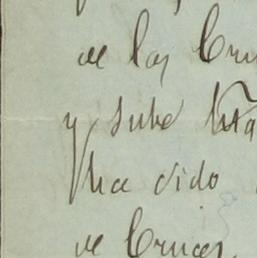 de las Cru
y sube hta
ha sido
de Cruces,